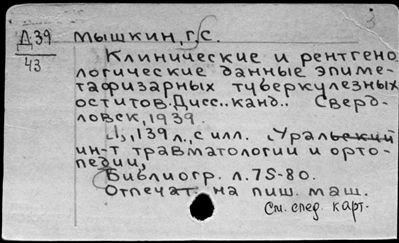 Д.39
43
Мышкин, Г.С.
Клинические и рентгено
логические данные эпиме-
тафизарных туберкулезных
оститов. Дисс.. канд.. Сверд-
ловск, 1939.
139 л., с илл. Уральский
ин-т травматологии и орто-
педии,
Библиогр. л. 75-80.
Отпечат. на пиш. маш.
См. след. карт.